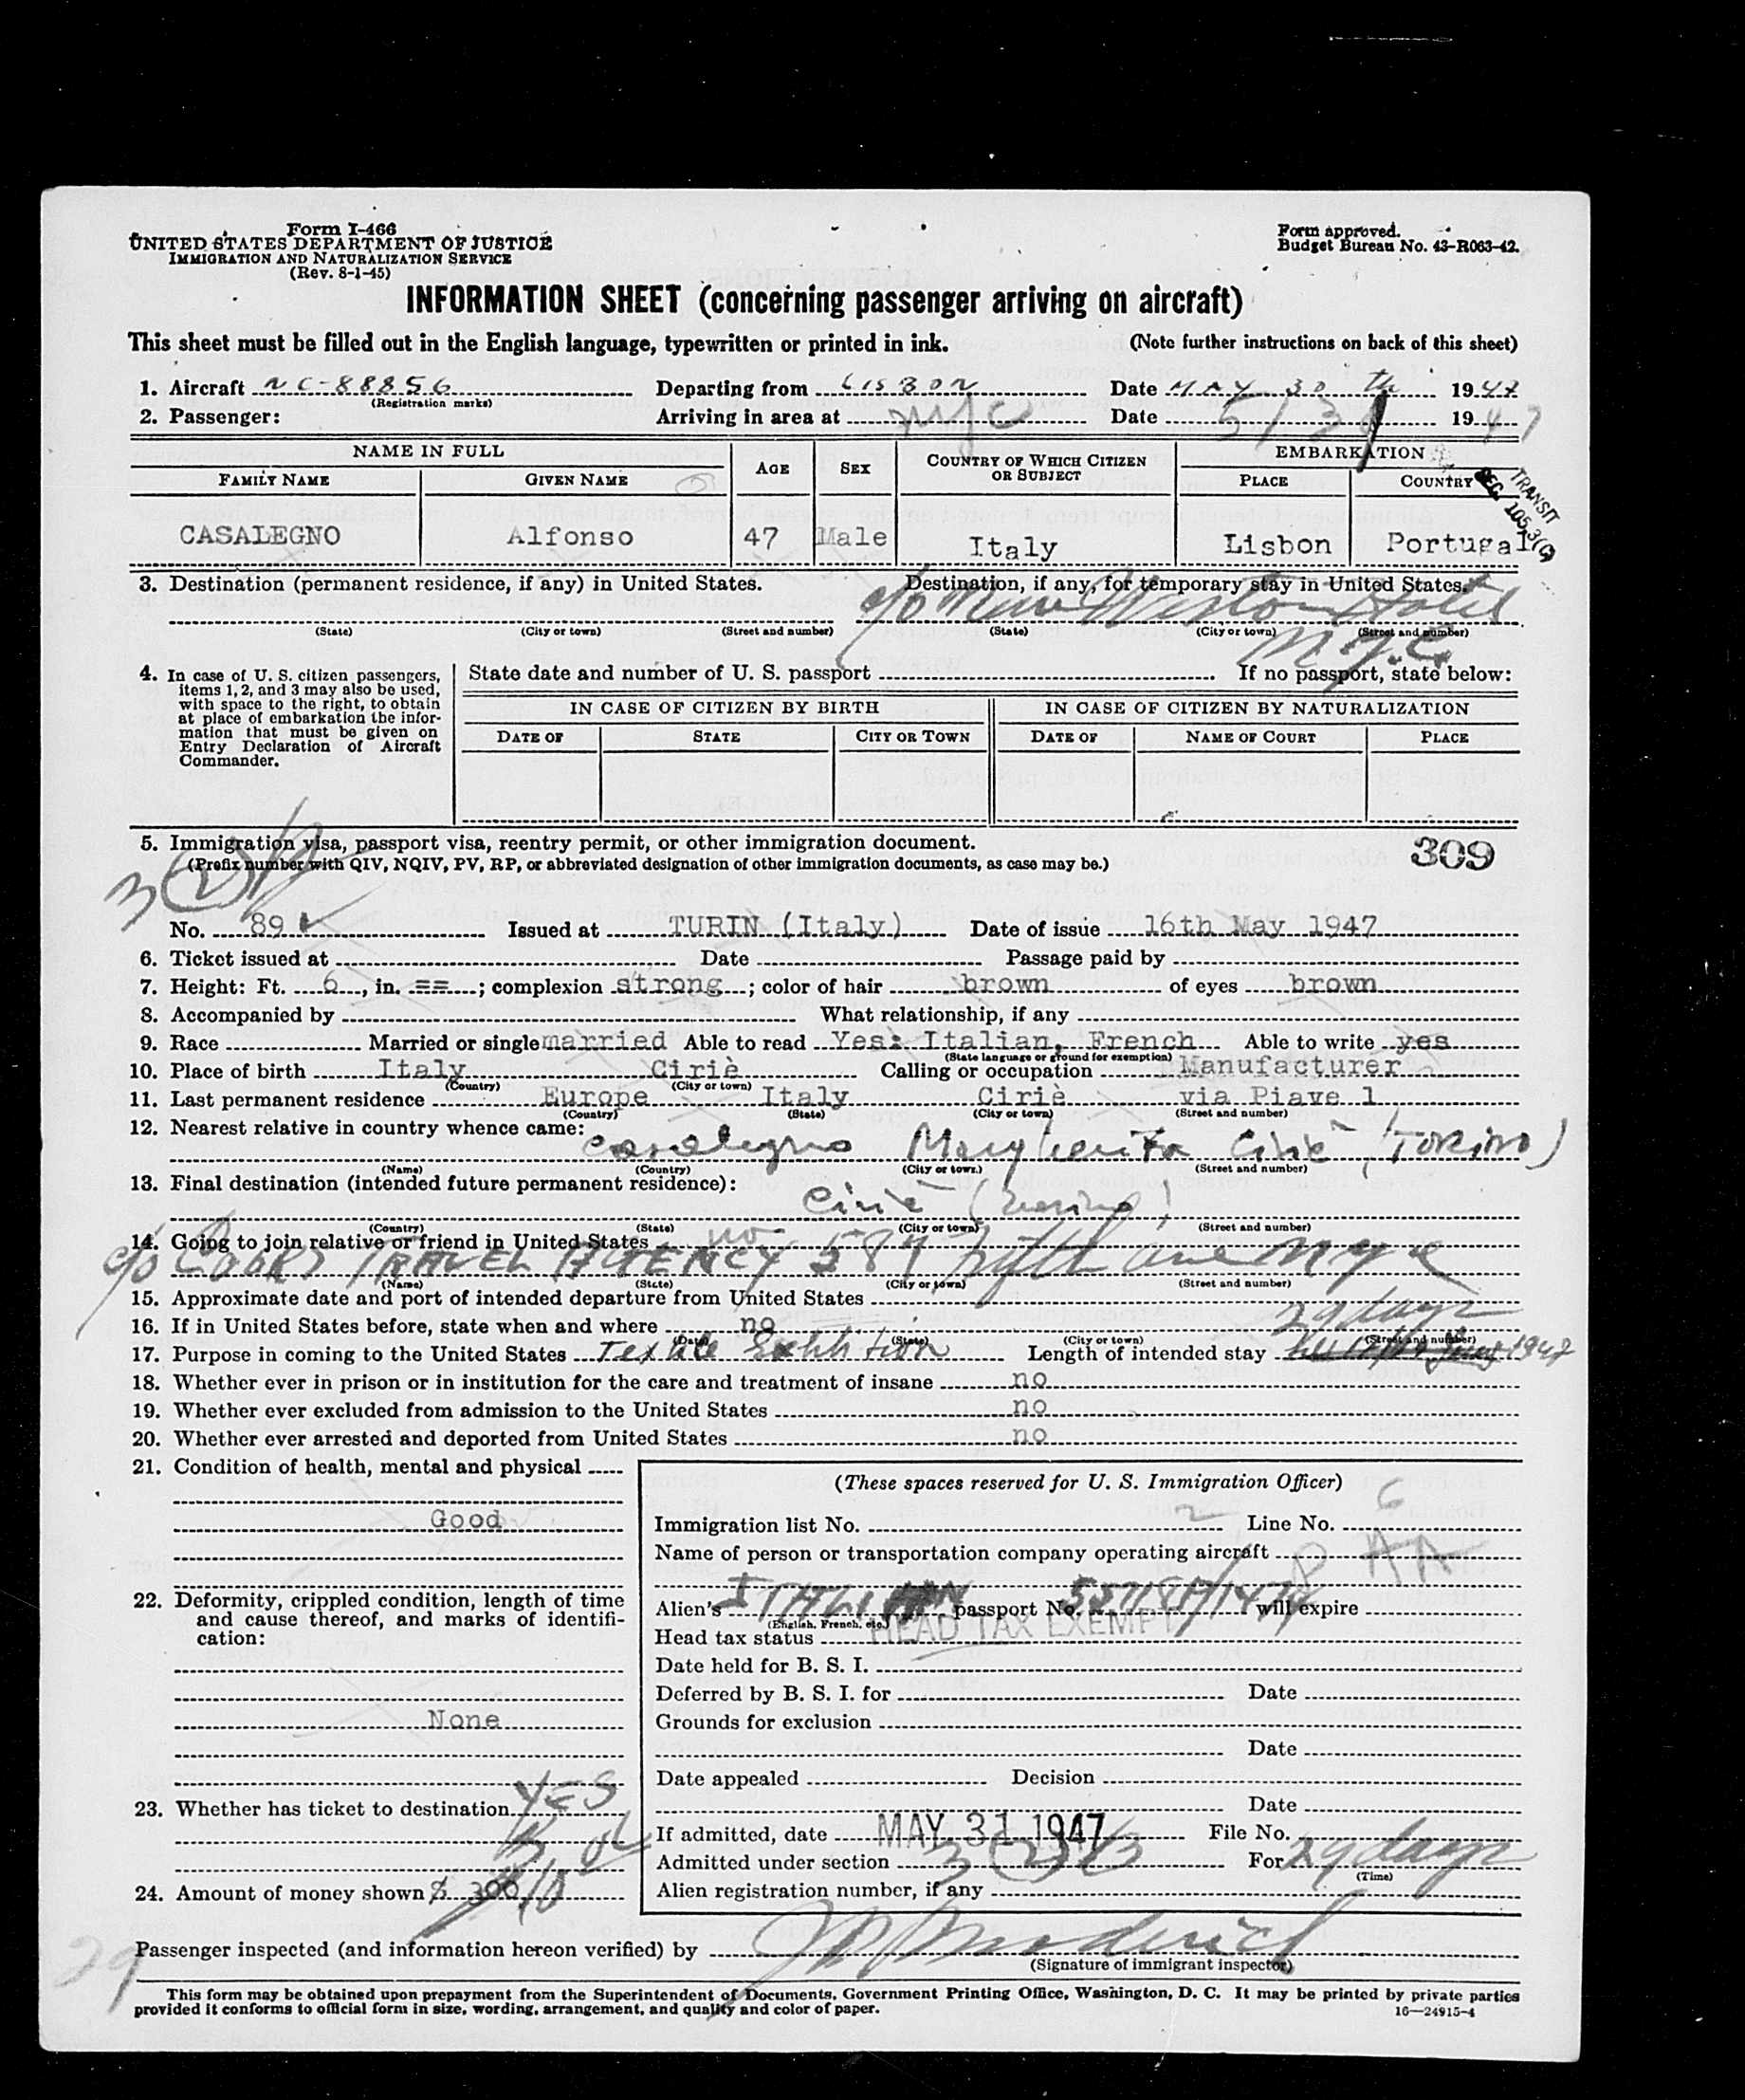 Form I-466
UNITED STATES DEPARTMENT OF JUSTICE
IMMIGRATION AND NATURALIZATION SERVICE
(Rev. 8-1-45)
Form approved.
Budget Bureau No. 43-R063-42.
INFORMATION SHEET (concerning passenger arriving on aircraft)
This sheet must be filled out in the English language, typewritten or printed in ink. (Note further instructions on back of this sheet)
1. Aircraft NC-88856 Departing from LISBON Date MAY 30 th 1947
(Registration marks)
2. Passenger: Arriving in area at NYC Date 5/31 1947
NAME IN FULL AGE SEX COUNTRY OF WHICH CITIZEN OR SUBJECT EMBARKATION
FAMILY NAME GIVEN NAME PLACE COUNTRY
TRANSIT
SEC. 105.3(c)
CASALEGNO Alfonso 47 Male Italy Lisbon Portugal
3. Destination (permanent residence, if any) in United States. Destination, if any, for temporary stay in United States.
c/o New Weston Hotel
(State) (City or town) (Street and number) (State) (City or town) (Street and number)
N.Y.C.
4. In case of U. S. citizen passengers, items 1, 2, and 3 may also be used, with space to the right, to obtain at place of embarkation the information that must be given on Entry Declaration of Aircraft Commander.
State date and number of U. S. passport If no passport, state below:
IN CASE OF CITIZEN BY BIRTH IN CASE OF CITIZEN BY NATURALIZATION
DATE OF STATE CITY OR TOWN DATE OF NAME OF COURT PLACE
5. Immigration visa, passport visa, reentry permit, or other immigration document. 309
(Prefix number with QIV, NQIV, PV, RP, or abbreviated designation of other immigration documents, as case may be.)
3(2)
No. 89 Issued at TURIN (Italy) Date of issue 16th May 1947
6. Ticket issued at Date Passage paid by
7. Height: Ft. 6, in. ==; complexion strong; color of hair brown of eyes brown
8. Accompanied by What relationship, if any
9. Race Married or single married Able to read Yes: Italian, French Able to write yes
(State language or ground for exemption)
10. Place of birth Italy Ciriè Calling or occupation Manufacturer
(Country) (City or town)
11. Last permanent residence Europe Italy Ciriè via Piave 1
(Country) (State) (City or town) (Street and number)
12. Nearest relative in country whence came:
Casalegno Margherita Ciriè (Torino)
(Name) (Country) (City or town.) (Street and number)
13. Final destination (intended future permanent residence):
Ciriè (Torino)
(Country) (State) (City or town) (Street and number)
14. Going to join relative or friend in United States no
c/o COOKS TRAVEL AGENCY 587 Fifth ave NYC
(Name) (State) (City or town) (Street and number)
15. Approximate date and port of intended departure from United States
16. If in United States before, state when and where no 29 days
(Date) (State) (City or town) (Street and number)
17. Purpose in coming to the United States Textile Exhibition Length of intended stay 1947
18. Whether ever in prison or in institution for the care and treatment of insane no
19. Whether ever excluded from admission to the United States no
20. Whether ever arrested and deported from United States no
21. Condition of health, mental and physical
Good
22. Deformity, crippled condition, length of time and cause thereof, and marks of identification:
None
23. Whether has ticket to destination YES
24. Amount of money shown $ 300
(These spaces reserved for U. S. Immigration Officer)
Immigration list No. 2 Line No. 6
Name of person or transportation company operating aircraft PAA
Alien's ITALIAN passport No. will expire
(English, French, etc.)
Head tax status HEAD TAX EXEMPT
Date held for B. S. I.
Deferred by B. S. I. for Date
Grounds for exclusion
Date
Date appealed Decision
Date
If admitted, date MAY 31 1947 File No.
Admitted under section 3(2) For 29 days
(Time)
Alien registration number, if any
29
Passenger inspected (and information hereon verified) by
(Signature of immigrant inspector)
This form may be obtained upon prepayment from the Superintendent of Documents, Government Printing Office, Washington, D. C. It may be printed by private parties
provided it conforms to official form in size, wording, arrangement, and quality and color of paper. 16—24915-4